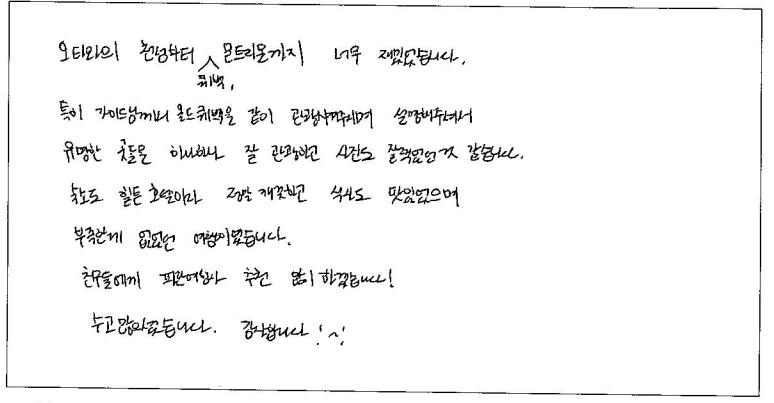 오타와의 천섬부터 퀘벡, 몬트리올까지 너무 재밌었습니다.
특히 가이드님께서 올드퀘벡을 같이 관광시켜주시며 설명해주셔서
유명한 곳들을 하나하나 잘 관광하고 사진도 잘 찍었던 것 같습니다.
숙소도 힐튼 호텔이라 정말 깨끗하고 식사도 맛있었으며
부족한게 없었던 여행이었습니다.
친구들에게 추천 많이 하겠습니다!
수고 많으셨습니다. 감사합니다!~!